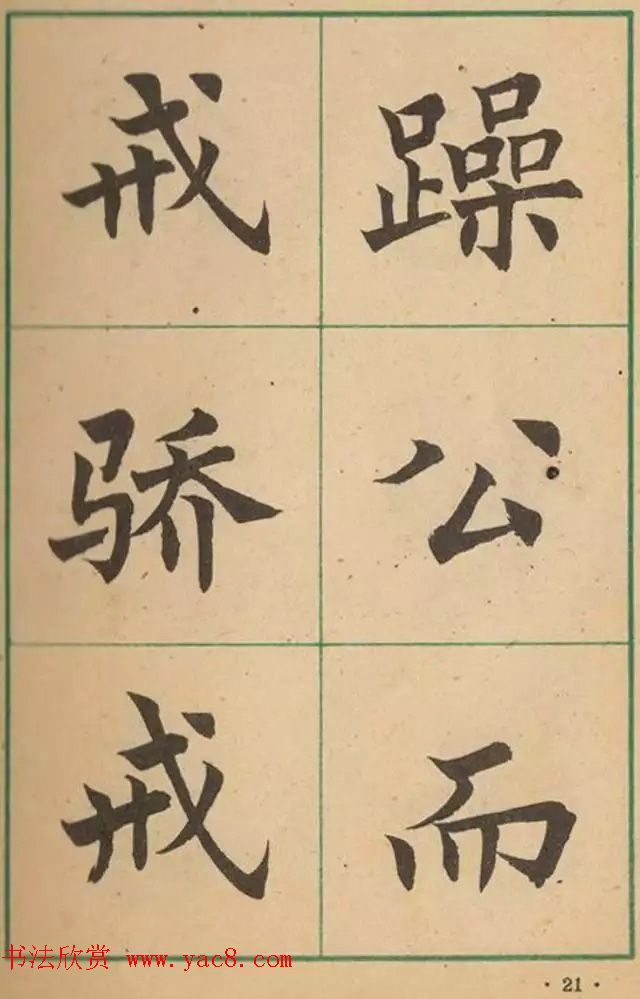 戒骄戒
躁公而
书法欣赏 www.yac8.com
·21·